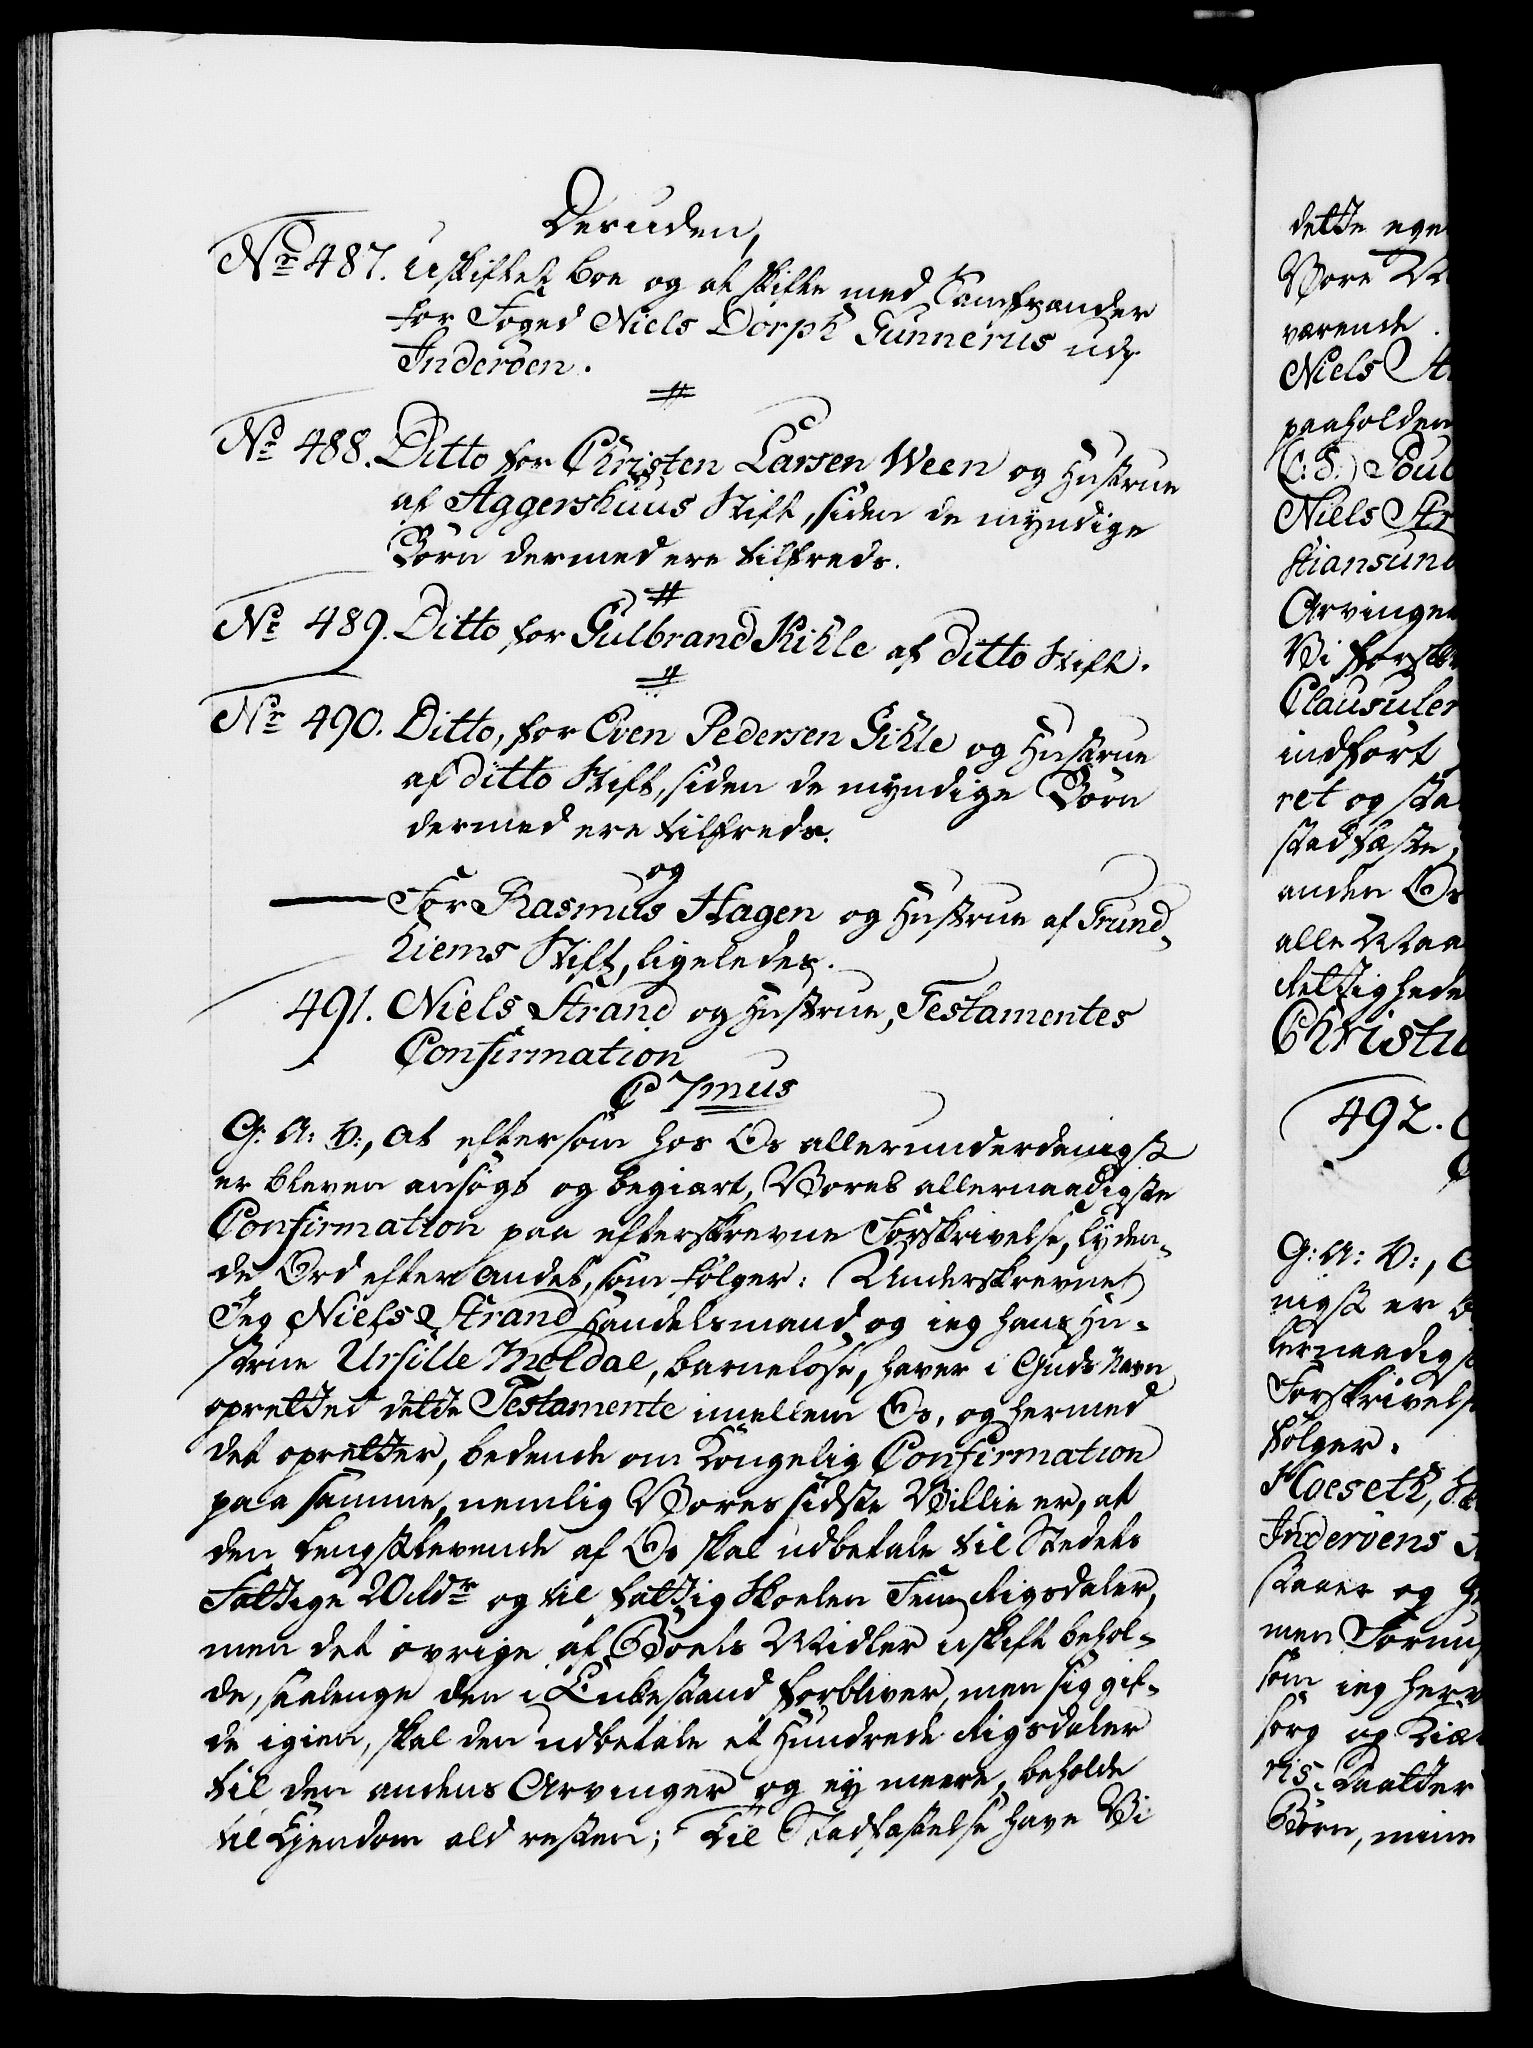 Desuden,
No 487. Uskiftet Boe og at skifte med Samfrænder
for Foged Niels Dorph Gunnerus udj
Inderøen.
No 488. Ditto for Christen Larsen Ween og Hustrue
af Aggershuus Stift, siden de myndige
Børn dermed ere tilfreds.
No 489. Ditto for Gulbrand Kihle af ditto Stift.
No 490. Ditto, for Even Pedersen Gihle og Hustrue
af ditto Stift, siden de myndige Børn
dermed ere tilfreds.
og
For Rasmus Hagen og Hustrue af Trund-
hiems Stift, ligeledes.
491. Niels Strand og Hustrue, Testamentes
Confirmation
C 7mus
G: A: V:, at eftersom hos Os allerunderdanigst
er bleven ansøgt og begiært, Vores allernaadigste
Confirmation paa efterskrevne Forskrivelse, lyden-
de Ord efter andet, som følger: Underskrevne
Jeg Niels Strand Handelsmand og ieg hans Hu-
strue Ursille Meldal, barneløse, haver i Guds Navn
oprettet dette Testamente imellem Os, og hermed
det opretter, bedende om Kongelig Confirmation
paa samme, nemlig Vores sidste Villie er, at
den længstlevende af Os skal udbetale til Stedets
Fattige 20 Rdr og til fattig Skolen Fem Rigsdaler,
men det øvrige af Boets Midler uskift behol-
de, saalenge den i Enkestand forbliver, men sig gif-
te igien, skal den udbetale et Hundrede Rigsdaler
til den andens Arvinger og ey meere, beholde
til Eyendom ald resten; Til Stadfæstelse have Vi
dette
Vore
værende
Niels
(:S:) Poul
Niels
stiansund
Arvinger
Vi
Clausuler
indført
ret og
stadfæste,
anden
alle
Christi
492.
G: A: V:,
nigst er
Forskrivels
følger.
Hoeseth,
Inderøens
og
men
som ieg
sorg og
Børn, mine